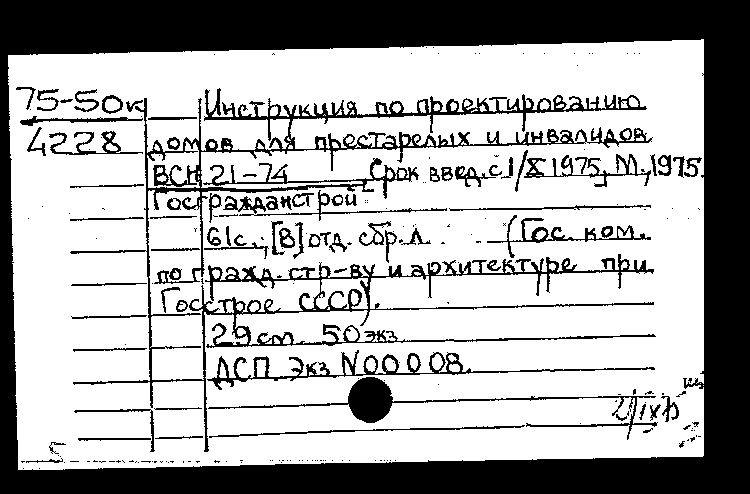 75-50к Инструкция по проектированию
4228 домов для престарелых и инвалидов
ВСН 21-74 Срок введ. с 1/X 1975, М., 1975.
Госгражданстрой
61с., [В] отд. сбр. л. (Гос. ком.
по гражд. стр-ву и архитектуре при
Госстрое СССР).
29 см 50 экз
ДСП. Экз N00008.
5